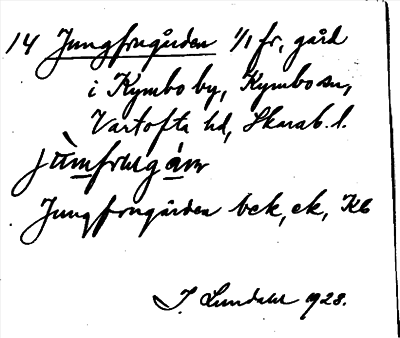 14 Jungfrugården 1/1 fr, gård
i Kymbo by, Kymbo sn,
Vartofta hd, Skarab. l.
Jungfrugården bek, ek, Kb
J. Lundahl 1928.